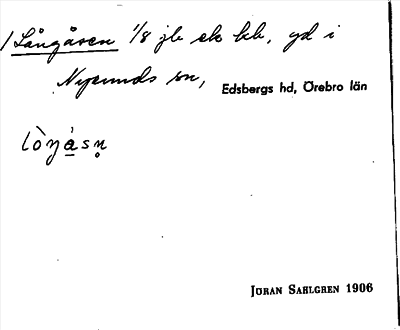 /Långåsen 1/8 jb sk kb, yd i
Nysunds sn, Edsbergs hd, Örebro län
lòŋa̠̍sn̥
JÖRAN SAHLGREN 1906